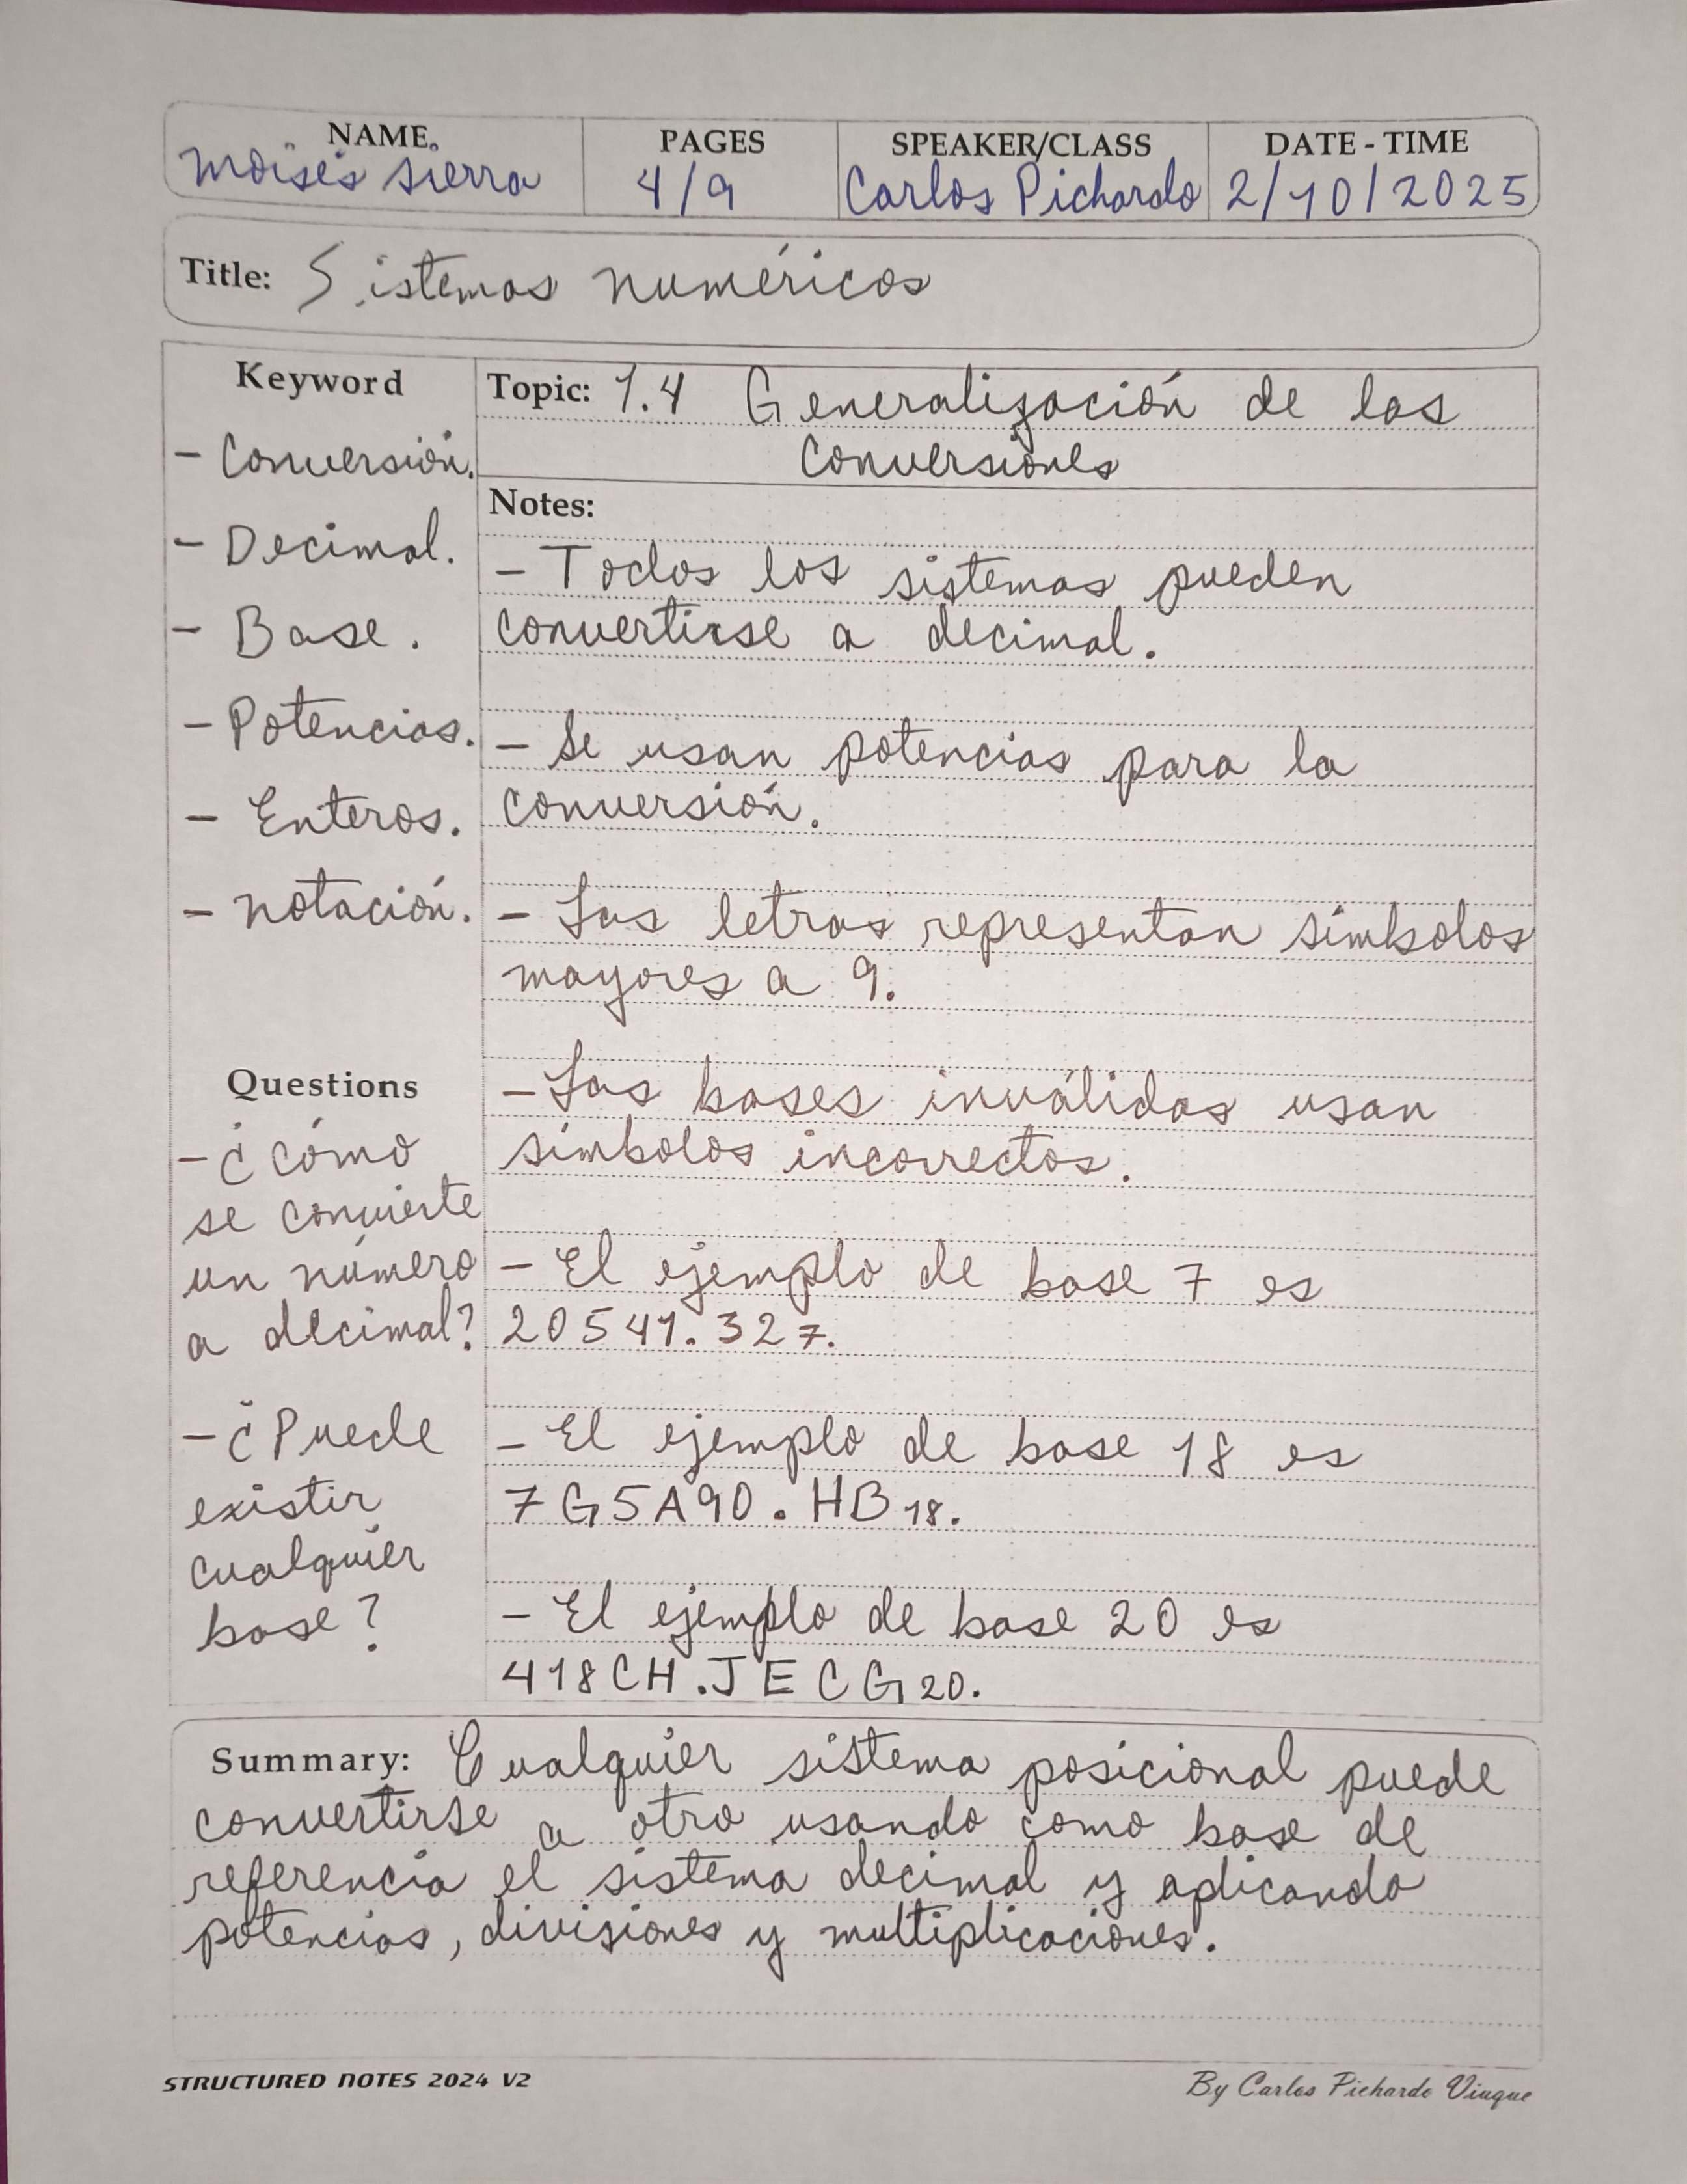 NAME PAGES SPEAKER/CLASS DATE - TIME
Moisés Sierra 4/9 Carlos Pichardo 2/10/2025
Title: Sistemas numéricos
Keyword
- Conversión.
- Decimal.
- Base.
- Potencias.
- Enteros.
- Notación.
Questions
- ¿Cómo
se convierte
un número
a decimal?
- ¿Puede
existir
cualquier
base?
Topic: 1.4 Generalización de las
conversiones
Notes:
- Todos los sistemas pueden
convertirse a decimal.
- Se usan potencias para la
conversión.
- Las letras representan símbolos
mayores a 9.
- Las bases inválidas usan
símbolos incorrectos.
- El ejemplo de base 7 es
20541.32₇.
- El ejemplo de base 18 es
7G5A90.HB₁₈.
- El ejemplo de base 20 es
418CH.JECG₂₀.
Summary: Cualquier sistema posicional puede
convertirse a otro usando como base de
referencia el sistema decimal y aplicando
potencias, divisiones y multiplicaciones.
STRUCTURED NOTES 2024 V2 By Carlos Pichardo Viuque